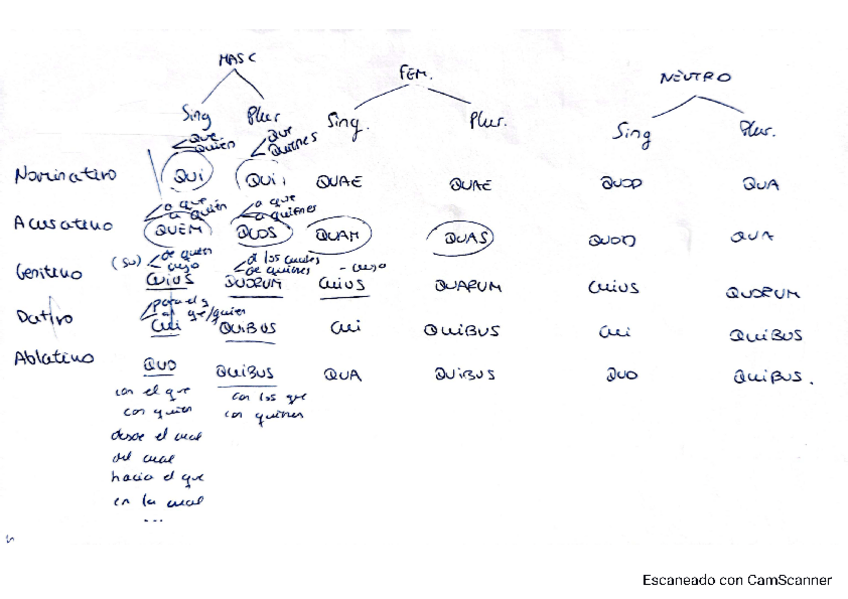 MASC
FEM.
NEUTRO
Sing Plur
Sing. Plur.
Sing Plur.
que que
quien quienes
Nominativo QUI QUI QUAE QUAE QUOD QUA
a que a que
a quién a quienes
Acusativo QUEM QUOS QUAM QUAS QUOD QUA
(su) de quien d los cuales
cuyo de quienes - cuyo
Genitivo CUIUS QUORUM CUIUS QUARUM CUIUS QUORUM
para el q
al qe/quien
Dativo CUI QUIBUS CUI QUIBUS CUI QUIBUS
Ablativo QUO QUIBUS QUA QUIBUS QUO QUIBUS.
con el que con los que
con quien con quienes
desde el cual
del cual
hacia el que
en la cual
...
Escaneado con CamScanner